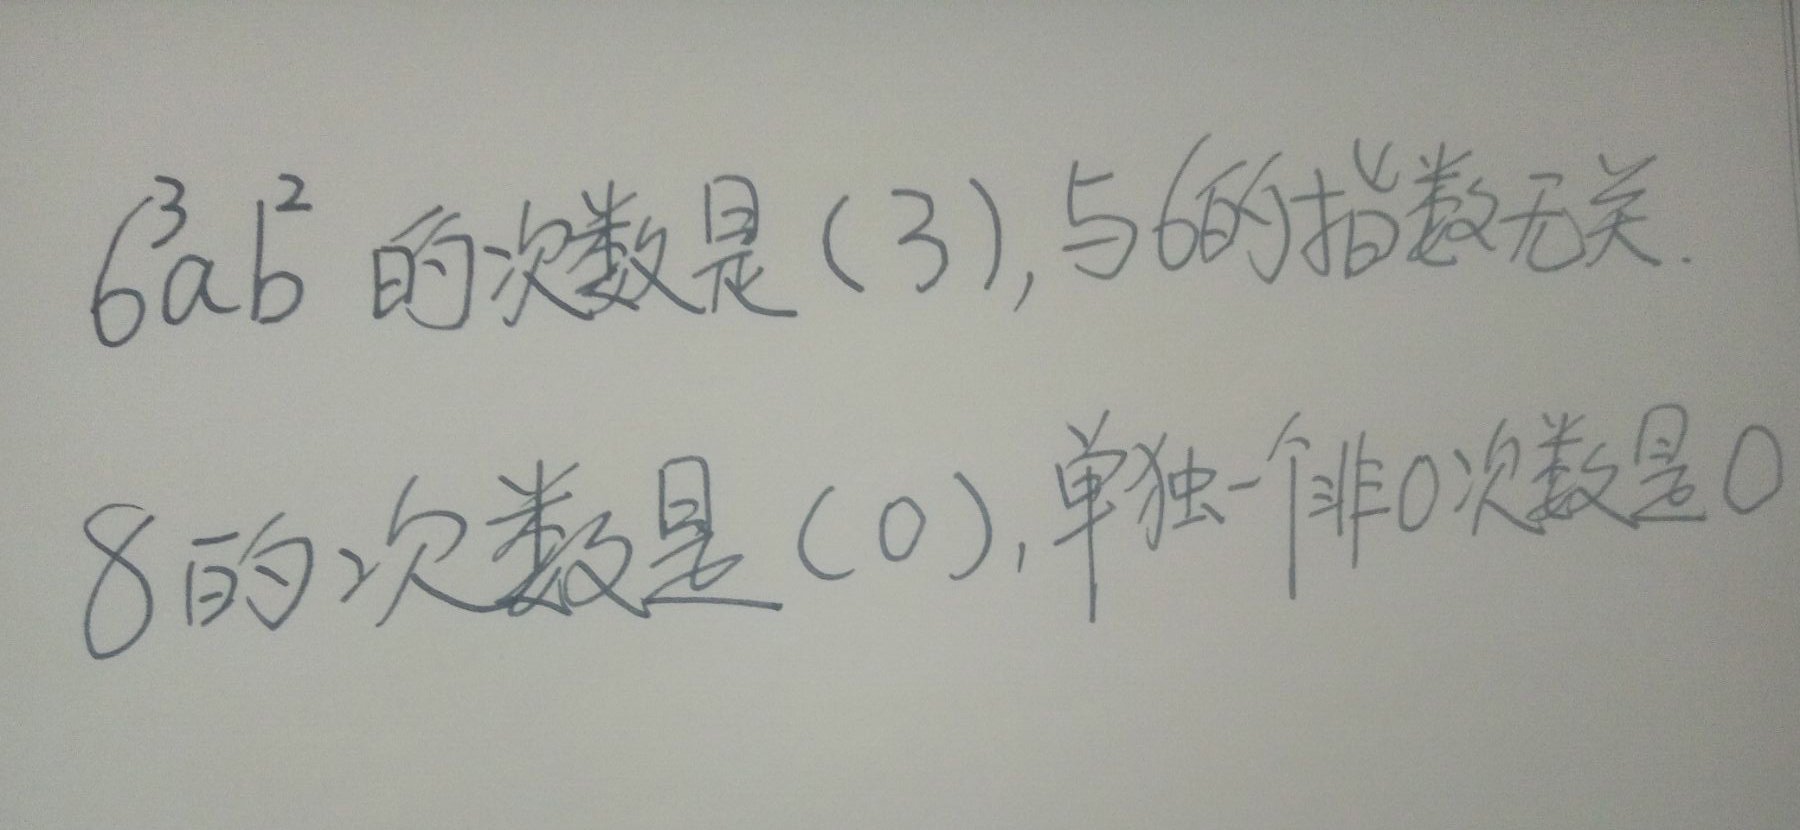 6³ab² 的次数是(3),与6的指数无关.
8的次数是(0),单独一个非0次数是0